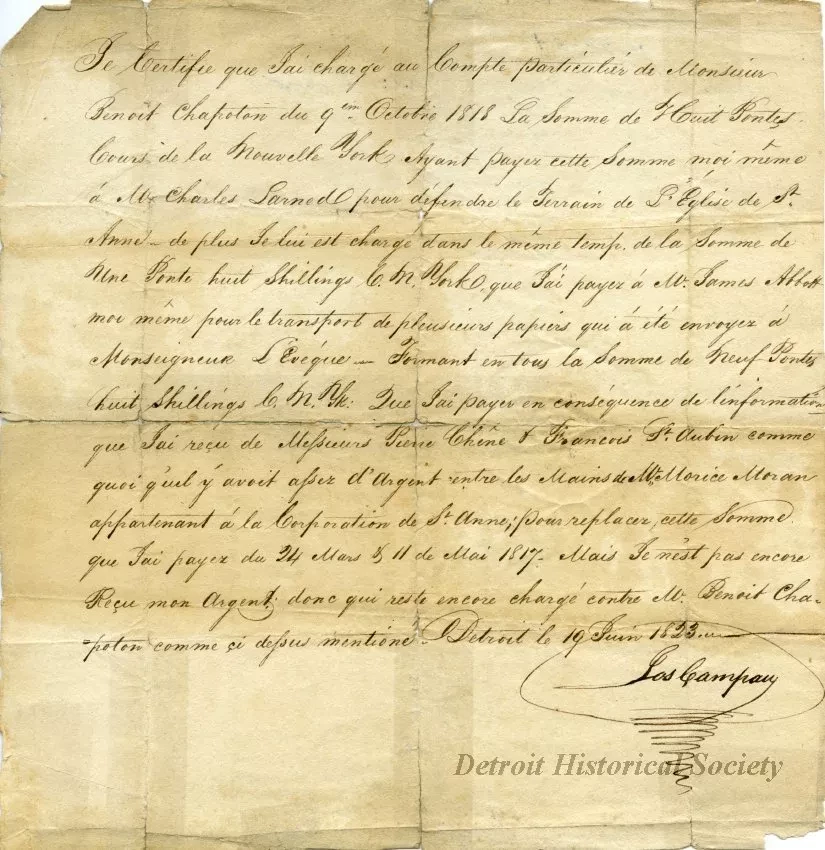 Je Certifie que J'ai chargé au Compte particulier de Monsieur
Benoit Chapoton du 9em Octobre 1818 La Somme de Huit Pontes.
Cours de la Nouvelle York Ayant payez cette Somme moi même
á Mr Charles Larned pour défendre le Terrain de L'Église de St.
Anne - de plus Je lui est chargé dans le même temp. de la Somme de
Une Ponte huit Shillings C. N. York, que J'ai payez á Mr. James Abbott
moi même pour le transport de pleusieurs papiers qui á été envoyez á
Monseigneur L'Evéque - Formant en tous la Somme de Neuf Pontes
huit Shillings C. N. Yk. Que J'ai payer en conséquence de l'information
que J'ai reçu de Messieurs Pierre Chêne & François St. Aubin comme
quoi qu'uil y avoit assez d'Argent entre les Mains de Mr. Morice Moran
appartenant á la Corporation de St. Anne, pour replacer, cette Somme.
que J'ai payez du 24 Mars & 11 de Mai 1817 - Mais Je n'est pas encore
Reçu mon Argent; donc qui reste encore chargé contre Mr. Benoit Cha-
=poton comme çi dessus mentioné - Detroit le 19 Juin 1823
Jos Campau
Detroit Historical Society